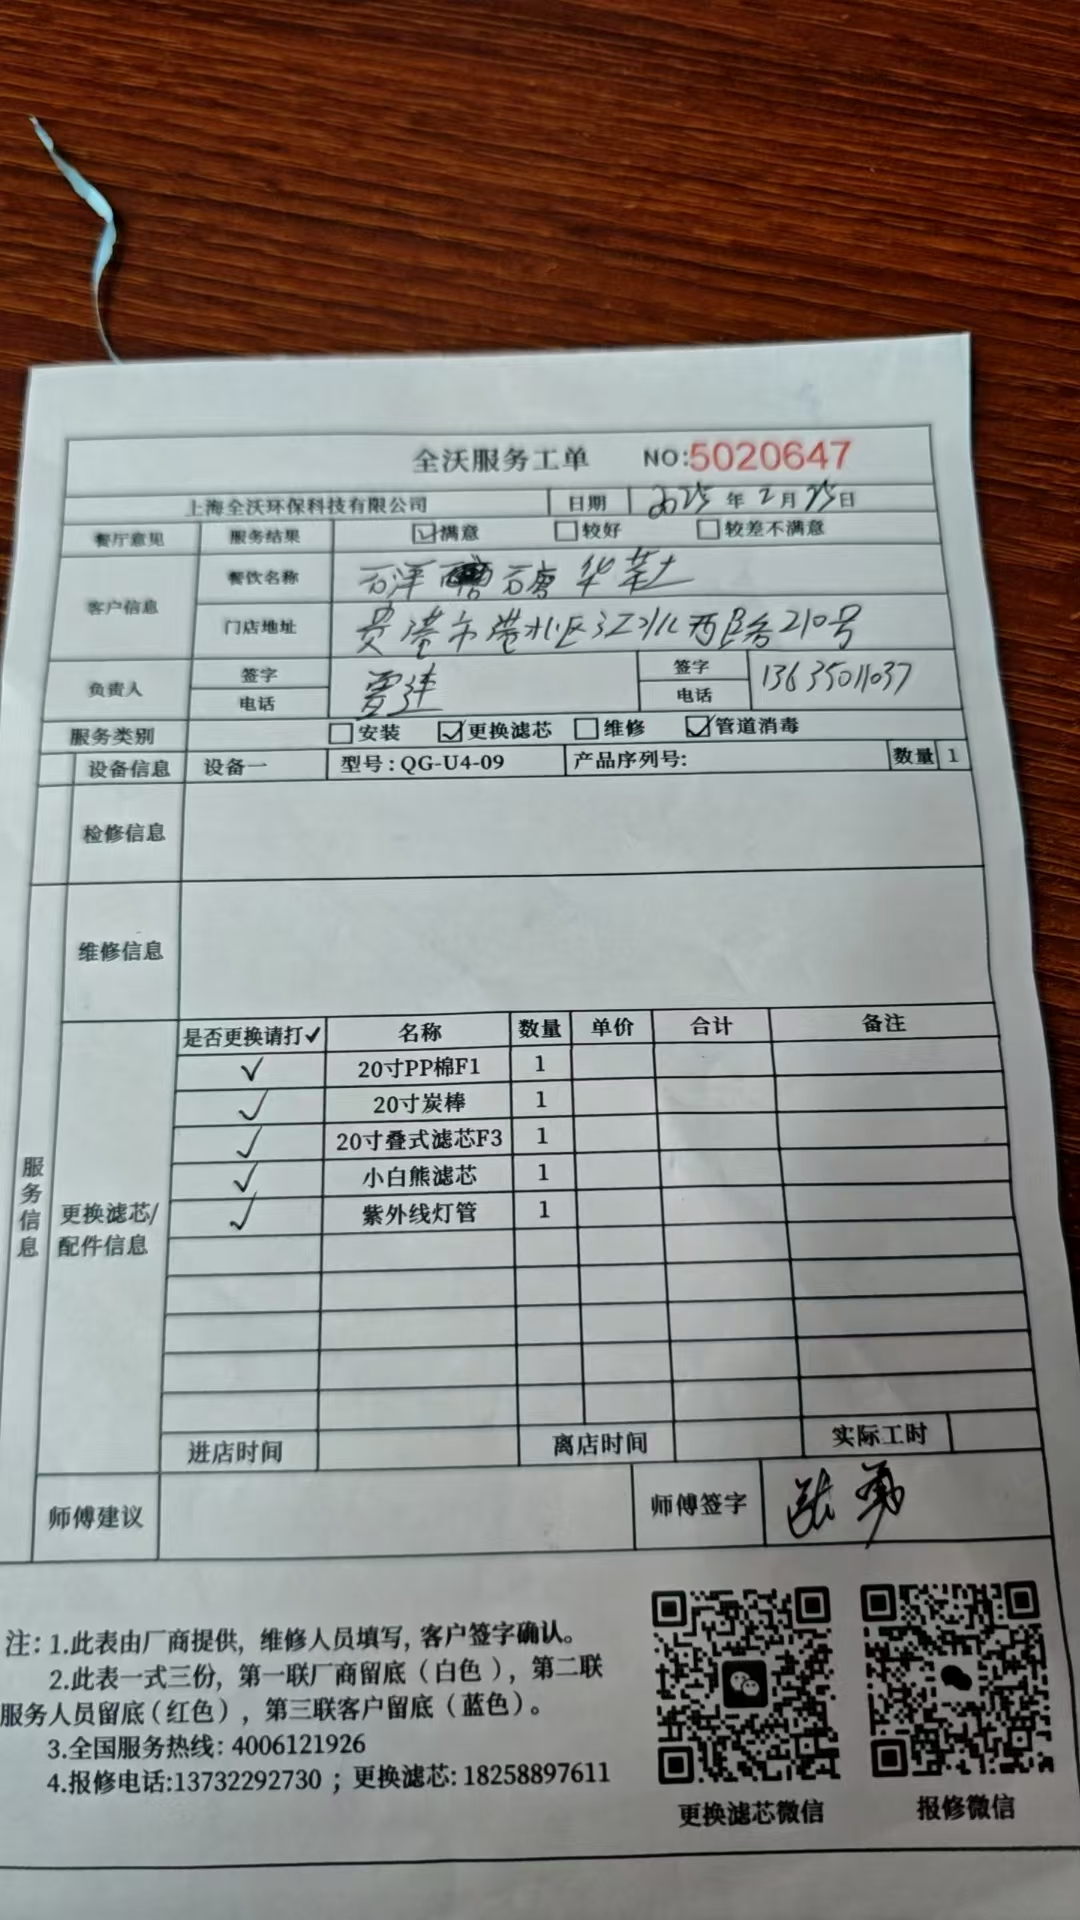 全沃服务工单 NO:5020647
上海全沃环保科技有限公司 日期 2025年2月25日
餐厅意见 服务结果 ☑满意 □较好 □较差不满意
客户信息 餐饮名称 华莱士
门店地址 贵港市港北区江北西路210号
负责人 签字 签字
电话 电话 13635011037
服务类别 □安装 ☑更换滤芯 □维修 ☑管道消毒
设备信息 设备一 型号:QG-U4-09 产品序列号: 数量 1
检修信息
维修信息
服务信息
更换滤芯/配件信息
是否更换请打✓ 名称 数量 单价 合计 备注
✓ 20寸PP棉F1 1
✓ 20寸炭棒 1
✓ 20寸叠式滤芯F3 1
✓ 小白熊滤芯 1
✓ 紫外线灯管 1
进店时间 离店时间 实际工时
师傅建议 师傅签字
注: 1.此表由厂商提供, 维修人员填写, 客户签字确认。
2.此表一式三份, 第一联厂商留底(白色), 第二联
服务人员留底(红色), 第三联客户留底(蓝色)。
3.全国服务热线: 4006121926
4.报修电话:13732292730 ; 更换滤芯: 18258897611
更换滤芯微信 报修微信